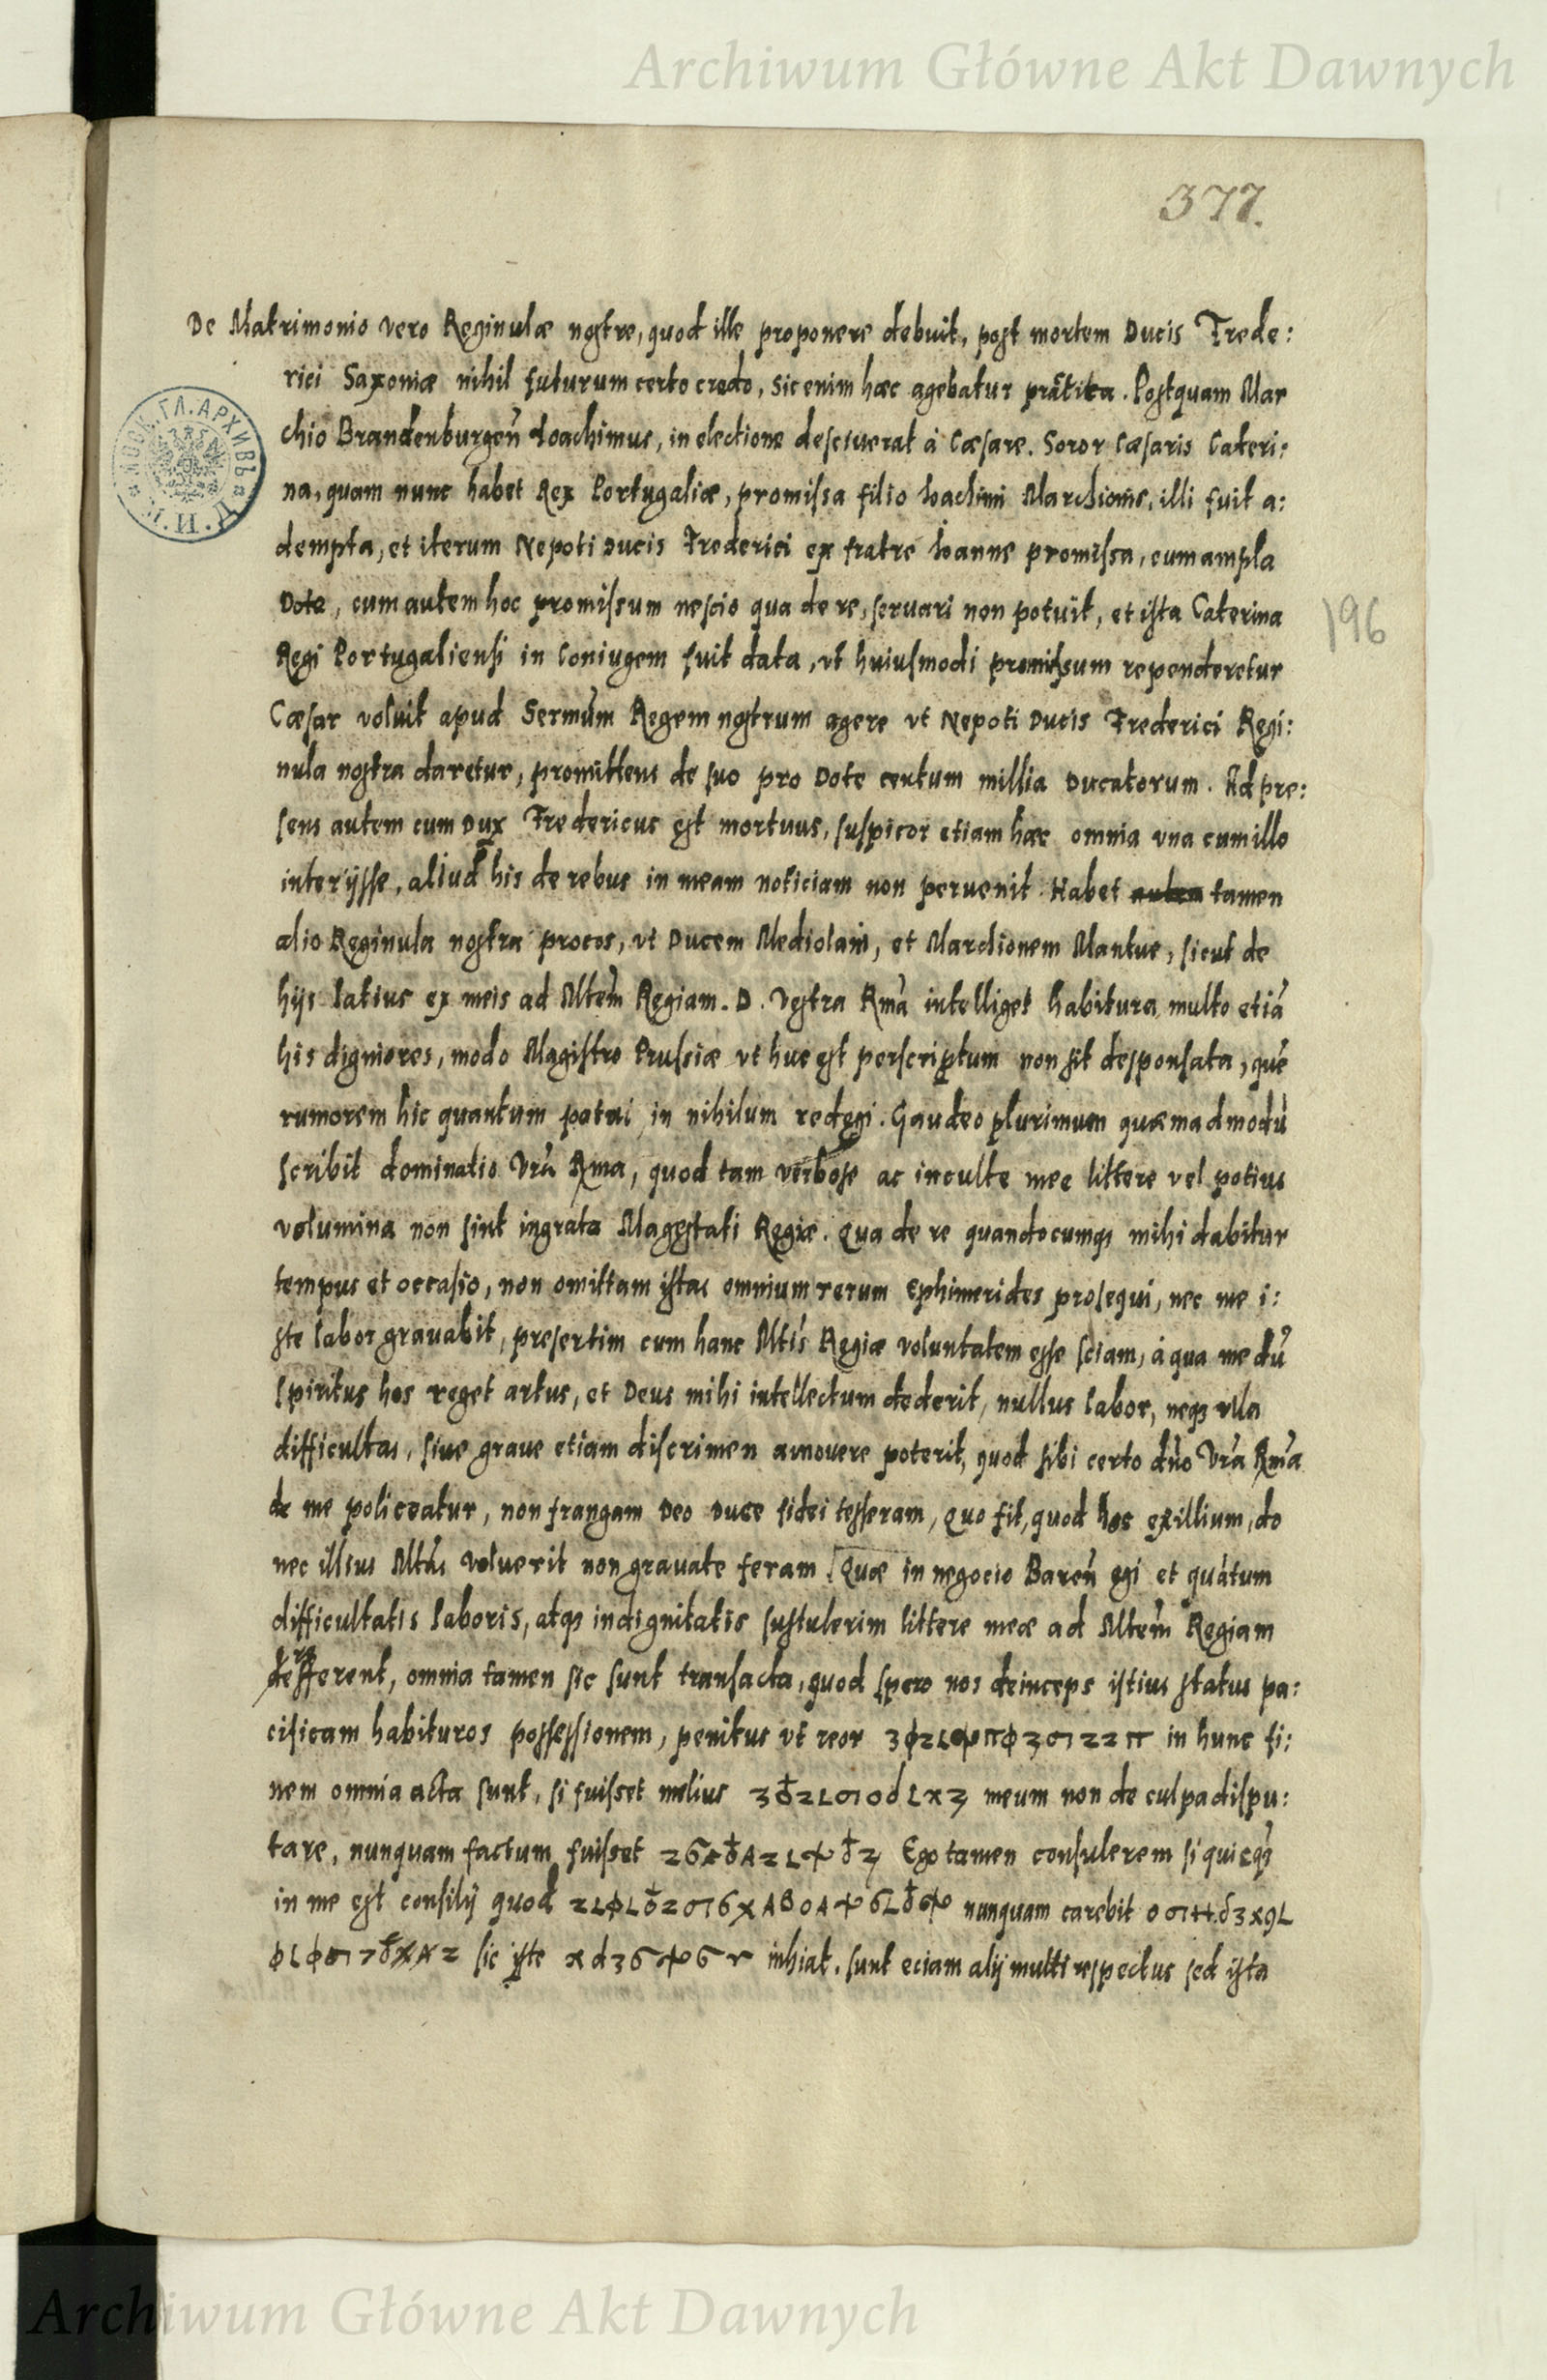 Archiwum Główne Akt Dawnych
377.
De Matrimonio vero Reginulæ nostre, quod ille proponere debuit, post mortem Ducis Frede:
rici Saxoniæ nihil futurum certo credo, sic enim hæc agebatur prãtica. Postquam Mar
chio Brandenburgeñ Ioachimus, in electione desciuerat à Cæsare. Soror Cæsaris Cateri:
na, quam nunc habet Rex Portugaliæ, promissa filio Ioachimi Marchionis, illi fuit a:
dempta, et iterum Nepoti Ducis Frederici ex fratre Ioanne promissa, cum ampla
Dote, cum autem hoc promissum nescio qua de re, seruari non potuit, et ista Caterina
Regi Portugaliensi in Coniugem fuit data, vt huiusmodi promissum rependeretur
Cæsar voluit apud Sermũm Regem nostrum agere vt Nepoti Ducis Frederici Regi:
nula nostra daretur, promittens de suo pro Dote centum millia Ducatorum. Ad pre:
sens autem cum Dux Fredericus est mortuus, suspicor etiam hæc omnia vna cum illo
interijsse, aliud his de rebus in meam noticiam non peruenit. Habet tamen
alio Reginula nostra procos, vt Ducem Mediolani, et Marchionem Mantue, sicut de
hijs latius ex meis ad Mtem̃ Regiam. D. Vestra Rmã intelliget habitura multo etiã
his digniores, modo Magistro Prussiæ vt huc est perscriptum non sit desponsata, quẽ
rumorem hic quantum potui in nihilum redegi. Gaudeo plurimum quæmadmodũ
scribit dominatio Vrã Rma, quod tam verbose ac inculte mee littere vel potius
volumina non sint ingrata Magestati Regiæ. Qua de re quandocumq3 mihi dabitur
tempus et occasio, non omittam istas omnium rerum Ephimerides prosequi, nec me i:
ste labor grauabit, presertim cum hanc Mtis̃ Regiæ voluntatem esse sciam, à qua me dũ
spiritus hos reget artus, et Deus mihi intellectum dederit, nullus labor, neq3 vlla
difficultas, siue graue etiam discrimen amouere poterit, quod sibi certo dño Vrã Rmã
de me policeatur, non frangam Deo Duce fidei tesseram, Quo fit, quod hoc exillium, do
nec illius Mtãs voluerit non grauate feram. Quæ in negocio Bareñ egi et quãtum
difficultatis laboris, atq3 indignitatis sustulerim littere meæ ad Mtem̃ Regiam
defferent, omnia tamen sic sunt transacta, quod spero nos deinceps istius status pa:
cificam habituros possessionem, penitus vt reor in hunc fi:
nem omnia acta sunt, si fuisset melius meum non de culpa dispu:
tare, nunquam factum fuisset Ego tamen consulerem si quicq3
in me est consilij quod nunquam carebit
sic iste inhiat. sunt eciam alij multi respectus sed ista
196
Archiwum Główne Akt Dawnych